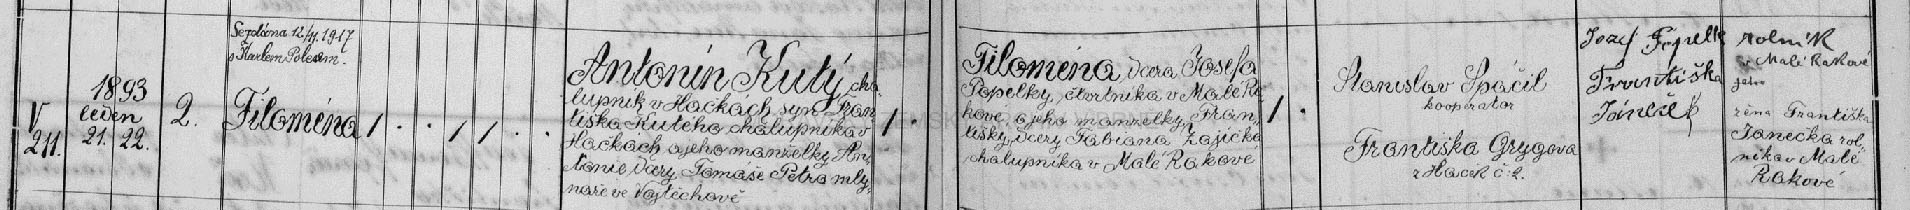 V
211.
1893
leden
21. 22.
2.
12/4. 1917
s Karlem
Filoména
1 . . 1 1 . .
Antonín Kutý, cha-
lupník v Hačkách, syn Fran-
tiška Kutého chalupníka v
Hačkách a jeho manželky An-
tonie dcery Tomáše Petra mly-
náře ve Vojtěchově
1 .
Filoména, dcera Josefa
Popelky, čtvrtníka v Malé Ra-
kové, a jeho manželky Fran-
tišky, dcery Fabiana Zajíčka
chalupníka v Malé Rakové
1 .
Stanislav Spáčil
kooperator
Františka Grygova
z Haček č. 2.
Jozef
Františka
rolník
v Malé Rakové
jeho
žena Františka
Janečka rol-
níka v Malé
Rakové